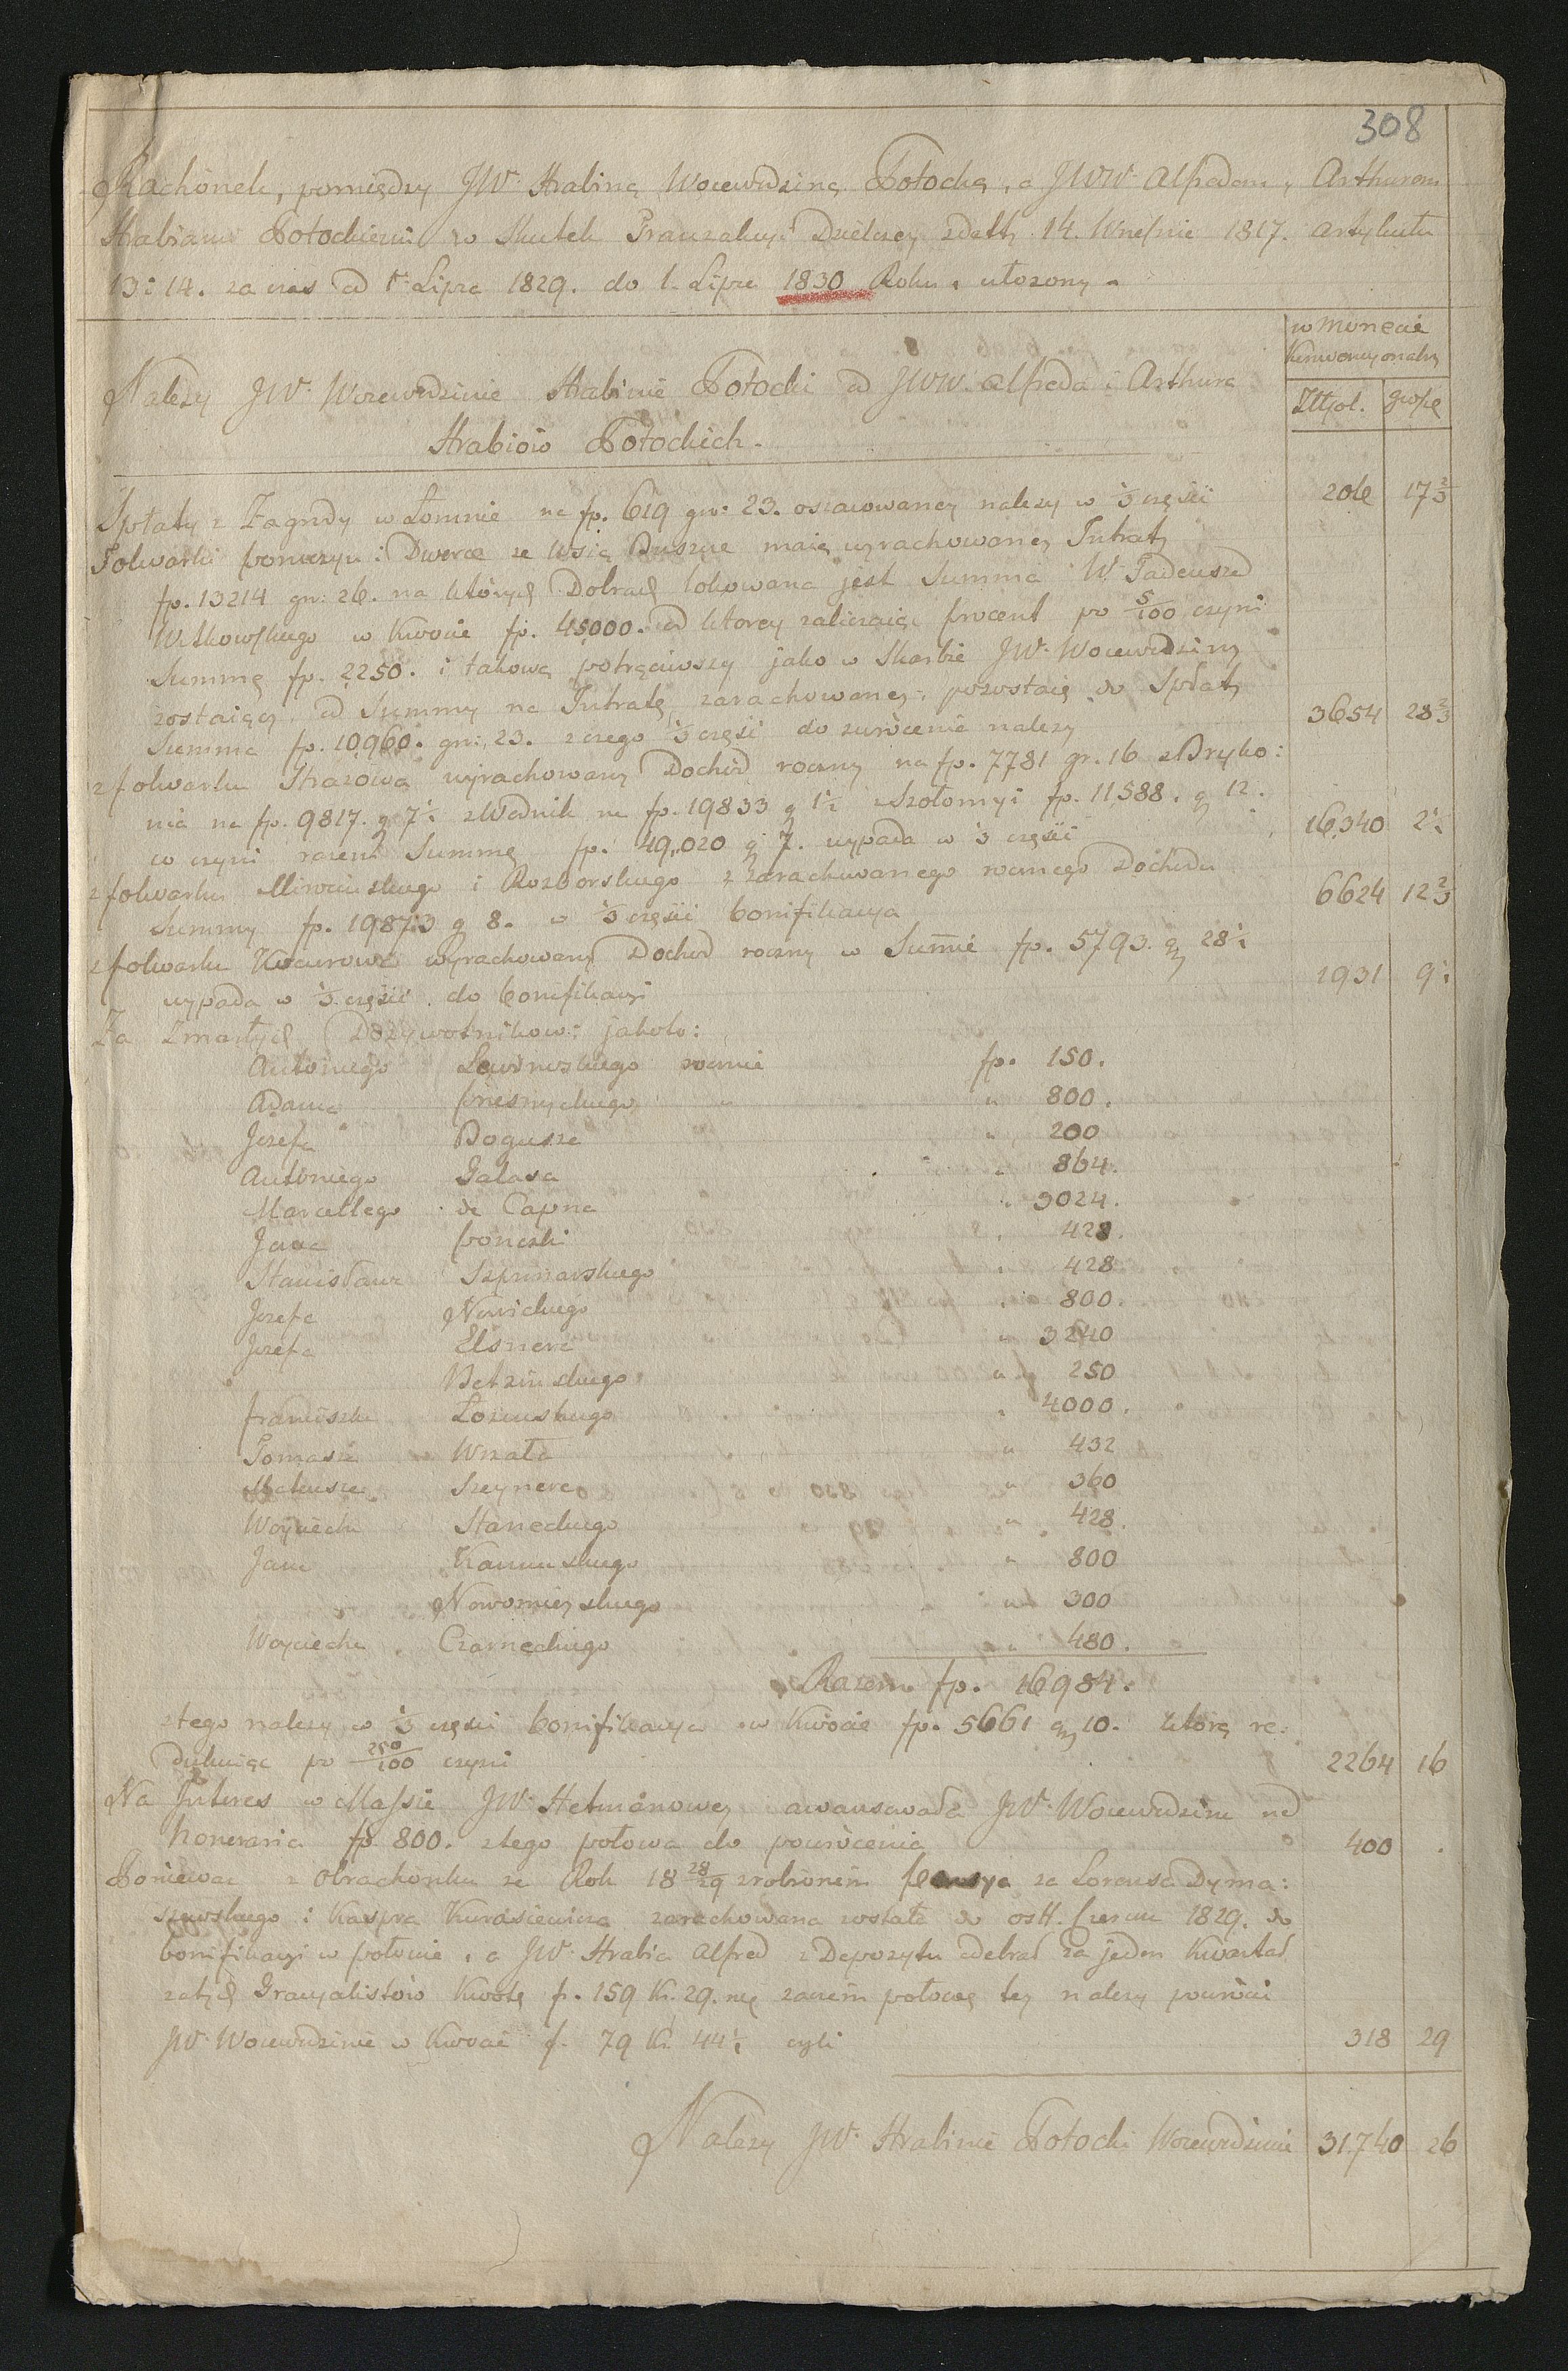 308
Rachonek, pomiędzy JW. Hrabiną Wojewodziną Potocką, a JWW. Alfredem, Arthurem
Hrabiami Potockiemi w Skutek Tranzakcyi Dzielczey zdatty 14. Wrześnie 1817. Artykułu
13 i 14. za czas od 1. Lipca 1829. do 1. Lipca 1830 Roku, ułozony.
w Monecie
Konwencyonalny
Złtpol. grosze
Nalezy JW. Wojewodzinie Hrabinie Potocki od JWW. Alfreda i Arthura
Hrabiów Potockich.
Spłaty z Zagrody w Łomnie na fp. 619 gr: 23. oszacowaney nalezy w ⅓ części 206 17⅔
Folwarki Dworce ze Wsią Buszcze maią wyrachowaney Intraty
fp. 13214 gr: 26. na których Dobrach lokowana jest Summa W. Tadeusza
Witkowskiego w Kwocie fp. 45000. od ktorey zaliczaiąc procent po 5/100 czyni
Summę fp. 2250. i takową potrąciwszy jako w Skarbie JW. Wojewodziny
zostaiącą, od Summy na Intratę zarachowaney, pozostaię do Spłaty
Summa fp. 10960. gr: 23. z czego ⅓ części do zwrócenia nalezy 3654 28⅔
z folwarku wyrachowany Dochód roczny na fp. 7781 gr. 16 z Bryko:
nia na fp. 9817. g 7½ z Wodnik na fp. 19833 g 1½ z Szołomyi fp. 11588. g 12.
co czyni razem Summę fp. 49,020 g 7. wypada w ⅓ części 16340 2½
z folwarku i Rozborskiego z zarachowanego rocznego Dochodu
Summy fp. 19873 g 8. w ⅓ części bonifikacya 6624 12⅔
z folwarku Kocurowa wyrachowany Dochod roczny w Summie fp. 5793. g 28½
wypada w ⅓ części do bonifikacyi 1931 9½
Za Zmarłych Dożywotnikow: jakoto:
Antoniego rocznie fp. 150.
Adama " " 800.
Jozefa Bogusza " 200
Antoniego Galasa " 864.
Marcellego de Capna " 3024.
Jana " 428.
Stanisława " 428
Jozefa Nowickiego " 800.
Jozefa Elsnera " 3240
Betzinskiego " 250
Franciszka " 4000.
Tomasza Wrzała " 432
Mateusza Szeynera " 360
Woyciecha Staneckiego " 428.
Jana " 800
Nowomieyskiego " 300
Woyciecha Czarneckiego " 480.
Razem fp. 16984.
ztego nalezy w ⅓ części bonifikacya w Kwocie fp. 5661 g 10. którą re:
dukuiąc po 250/100 czyni 2264 16
Na Interes w Massie JW. Hetmanowey awansowała JW. Wojewodzina na
honoraria fp. 800. ztego połowa do powrócenia 400 .
Poniewaz z Obrachonku ze Rok 18 28/29 zrobionem pensya za Lorensa Dyma:
szewskiego i Kaspra Kurasiewicza zarachowana została do ostt. Czerwca 1829. do
bonifikacyi w połowie, a JW. Hrabia Alfred z Depozytu odebrał za jeden Kwartał
zatych Gracyalistów Kwotę fr. 159 Kr. 29. więc zaczem połowę tey nalezy powrócić
JW. Wojewodzinie w Kwocie f. 79 Kr. 44½ czyli 318 29
Nalezy JW. Hrabinie Potocki Wojewodzinie 31.740 26